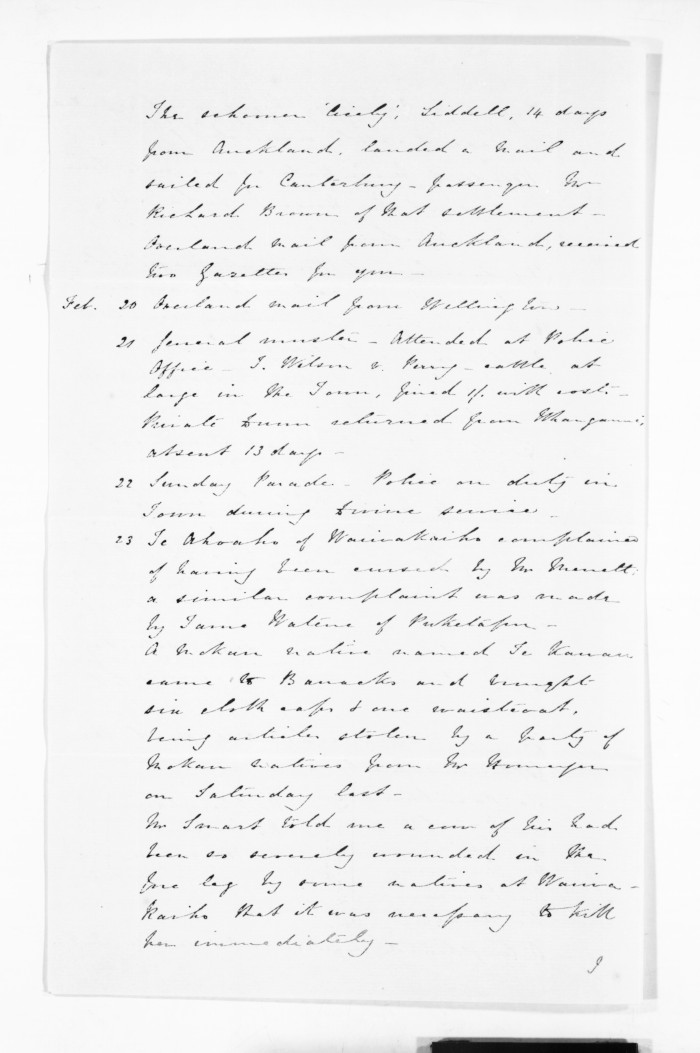 The schooner 'Cicely', Liddell, 14 days
from Auckland, landed a mail and
sailed for Canterbury - passenger Mr
Richard Brown of that settlement -
Overland mail from Auckland, received
two Gazettes for you -
Feb. 20 Overland mail from Wellington -
21 General muster - Attended at Police
Office - T. Wilson v. Perry - cattle at
large in the Town, fined 1/. with costs -
Private Dunn returned from Whanganui,
absent 13 days -
22 Sunday Parade - Police on duty in
Town during Divine service -
23 Te Ahoaho of Waiwakaiho complained
of having been cursed by Mr
a similar complaint was made
by Tamo Watene of Puketapu -
A Mokau native named Te Kawau
came to Barracks and brought
six cloth caps & one waistcoat,
being articles stolen by a party of
Mokau natives from Mr
on Saturday last -
Mr Smart told me a cow of his had
been so severely wounded in the
fore leg by some natives at Waiwa-
kaiho that it was necessary to kill
her immediately -
I